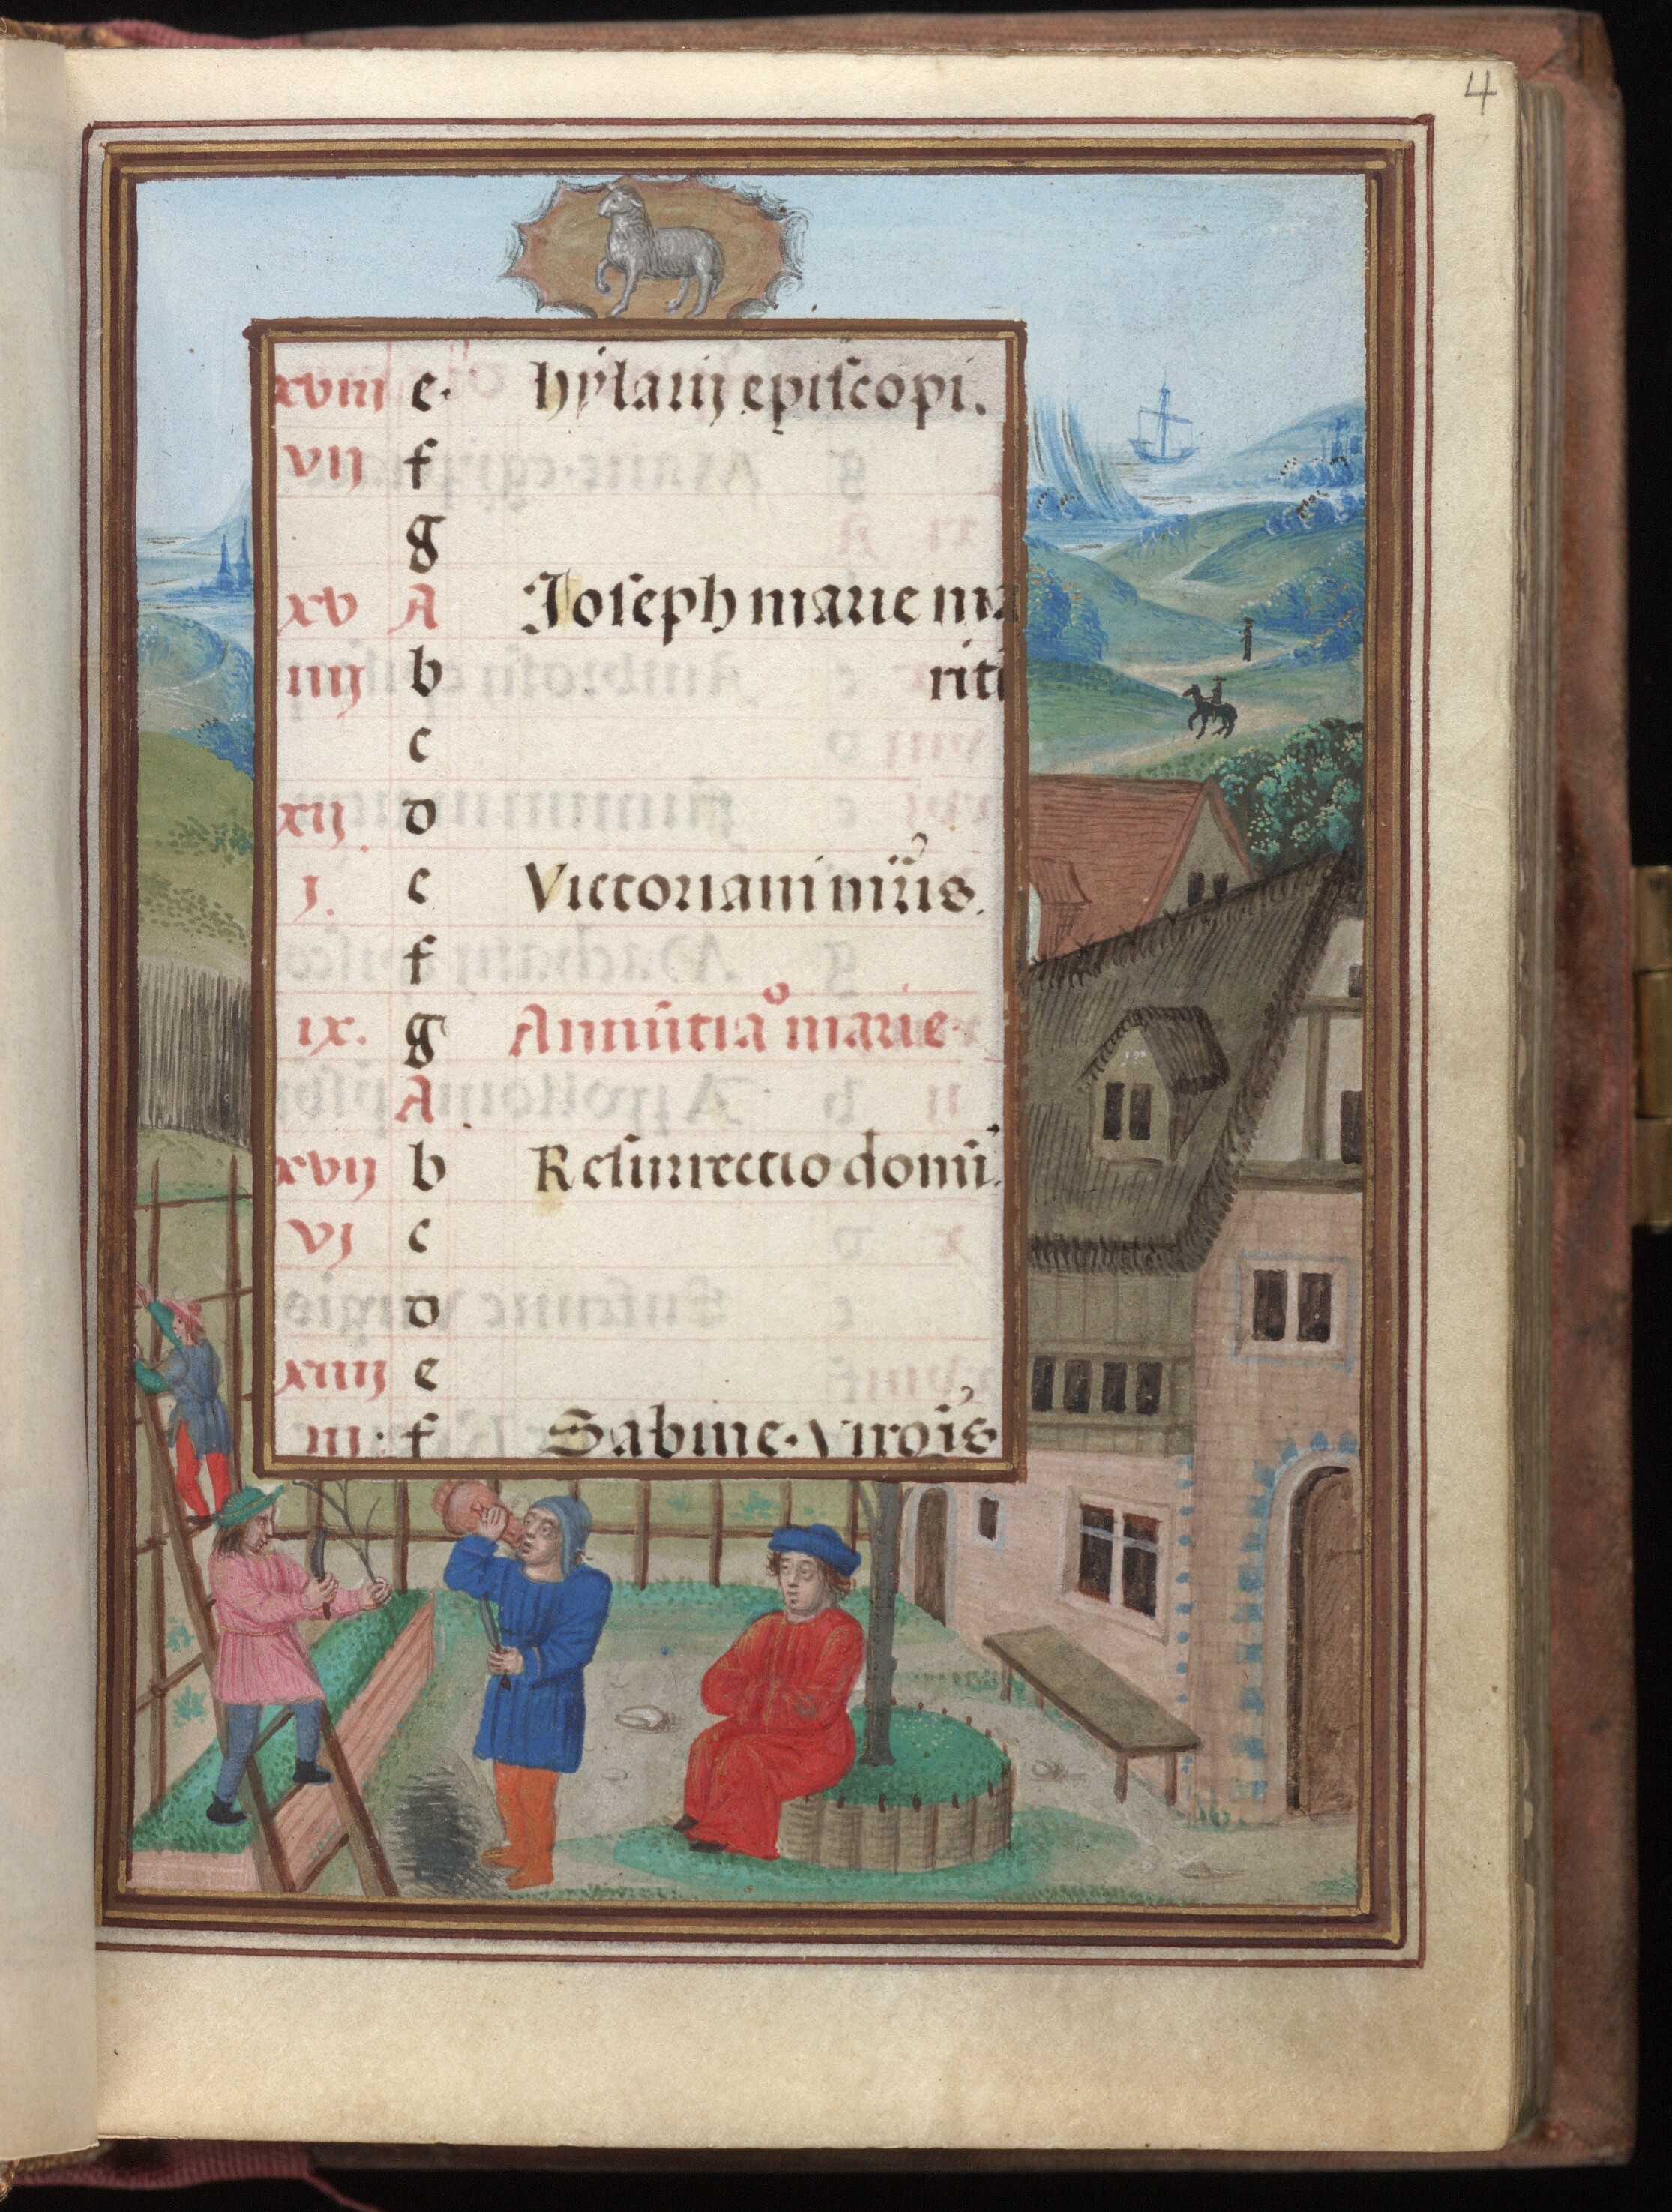 4
xviii e. hylarij episcopi.
vij f
g
xv A Joseph marie ma
iiij b riti
c
xij d
j. e Victoriani mr̃is.
f
ix. g Annũtiaº marie.
A
xvij b Resurrectio domĩ.
vj c
d
xiiij e
iij. f Sabine. virgĩs